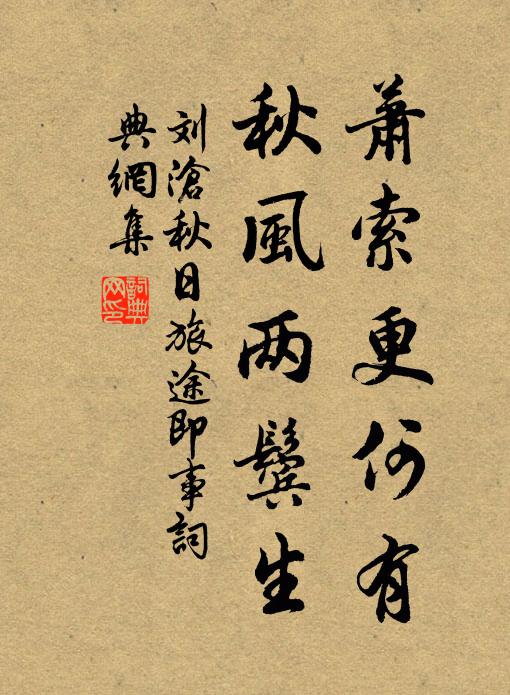 蕭索更何有
秋風两鬓生
刘滄秋日旅途即事詞
典網集
詞典
网印